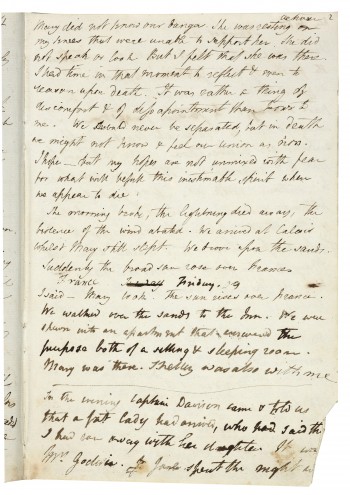 2
Mary did not know our danger. She was resting on
my knees that were unable to support her. She did
not speak or look. But I felt that she was there
I had time in that moment to reflect & even to
reason upon death. It was rather a thing of
discomfort & of disappointment than horror to
me. We should never be separated, but in death
we might not know & feel our union as now.
I hope — but my hopes are not unmixed with fear
for what will befall this inestimable spirit when
we appear to die.
The morning broke, the lightning died away, the
violence of the wind abated. We arrived at Calais
whilst Mary still slept. We drove upon the sands.
Suddenly the broad sun rose over France
France Friday. 29
I said — Mary look. The sun rises over France.
We walked over the sands to the Inn. We were
shewn into an apartment that answered the
purpose both of a sitting & sleeping room.
Mary was there. Shelley was also with me
In the evening Captain Davison came & told us
that a fat lady had arrived, who had said that
I had run away with her daughter. It was
Mrs Godwin. Jane spent the night